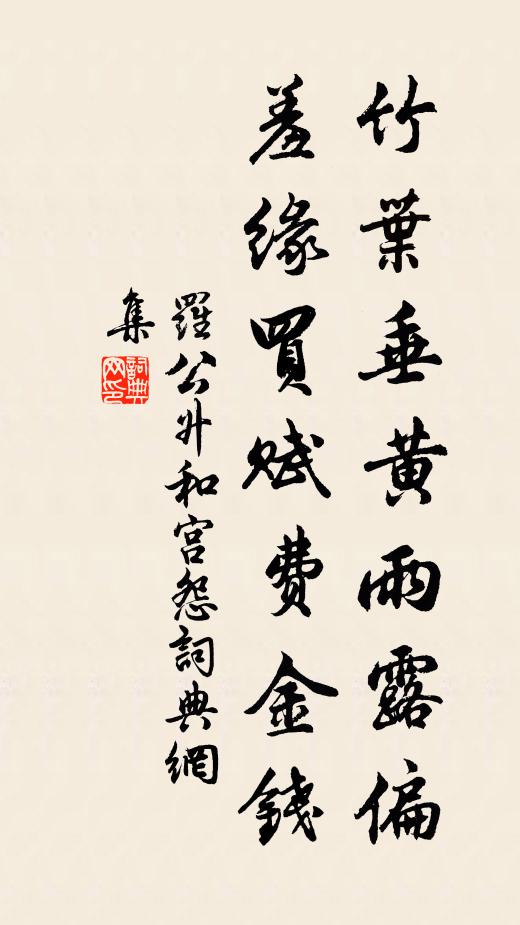 竹葉垂黄雨露偏
羞緣買賦費金錢
羅公升和宮怨詞典網
集
詞典
网印